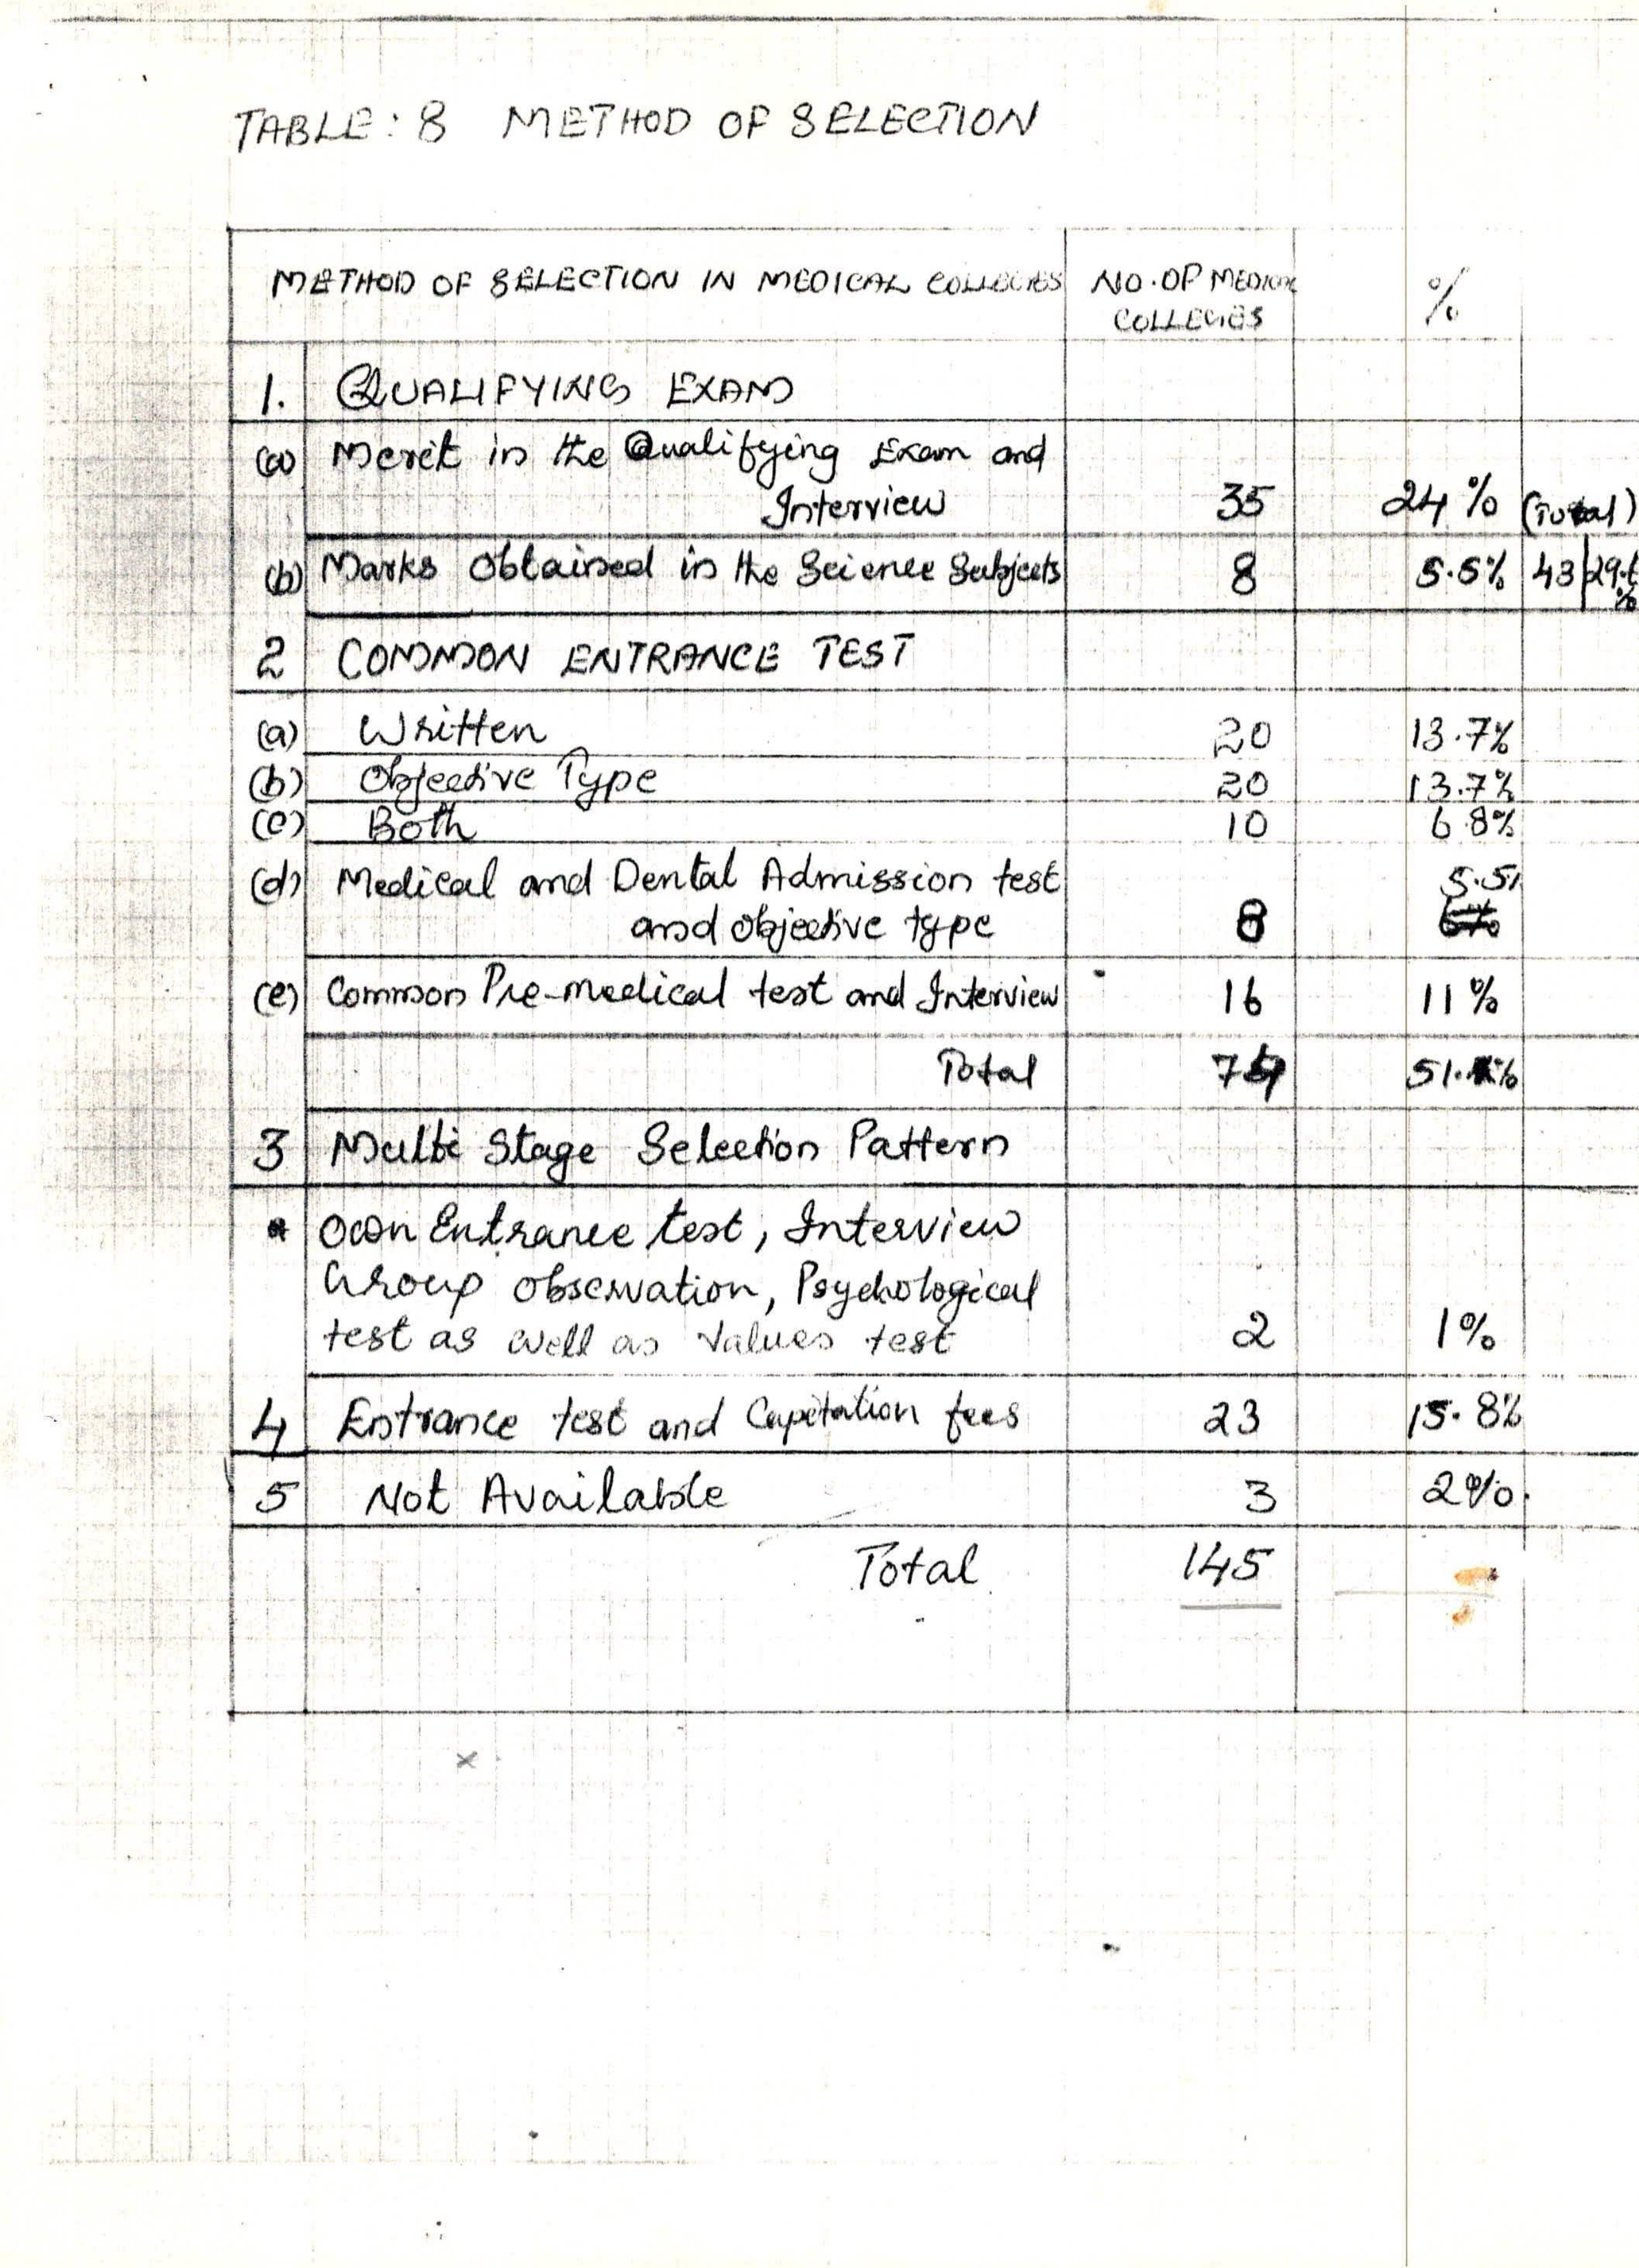 TABLE: 8 METHOD OF SELECTION
METHOD OF SELECTION IN MEDICAL COLLEGES NO. OF MEDICAL %
COLLEGES
1. QUALIFYING EXAM
(a) Merit in the Qualifying Exam and
Interview 35 24% (Total)
(b) Marks Obtained in the Science Subjects 8 5.5% 43
2 COMMON ENTRANCE TEST
(a) Written 20 13.7%
(b) Objective Type 20 13.7%
(c) Both 10 6.8%
(d) Medical and Dental Admission test 5.5
and objective type 8
(e) Common Pre-medical test and Interview 16 11%
Total 74
3 Multi Stage Selection Pattern
* Own Entrance test, Interview
Group observation, Psychological
test as well as values test 2 1%
4 Entrance test and Capitation fees 23 15.8%
5 Not Available 3 2%.
Total 145